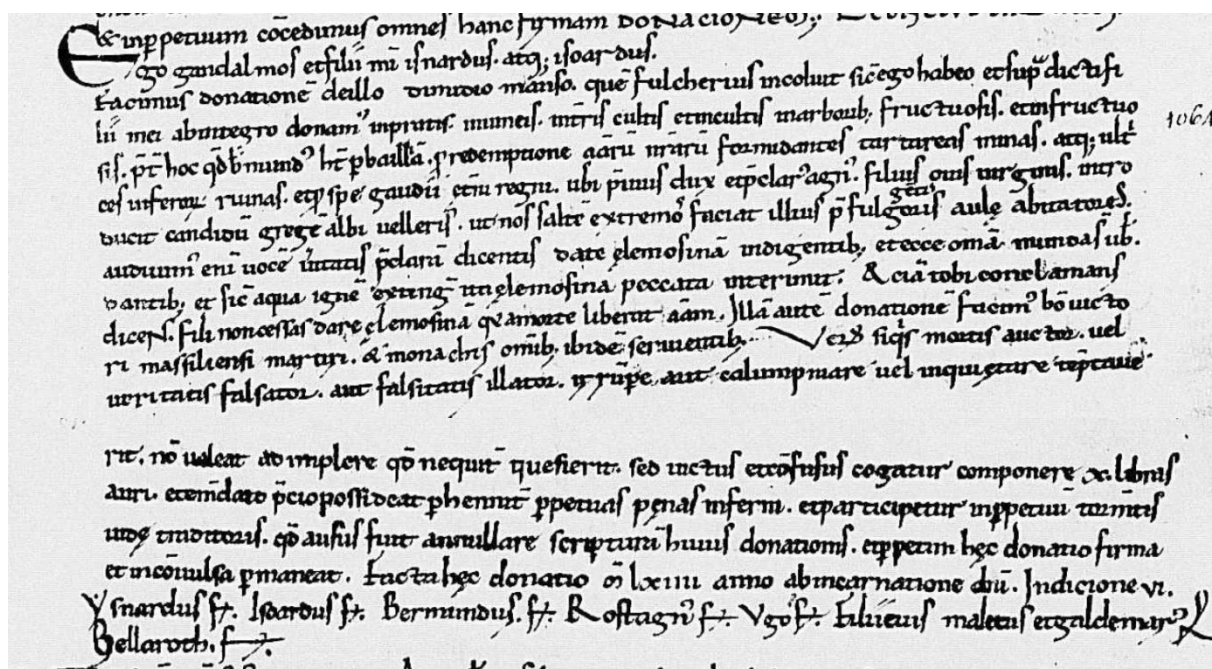 & inp̄petuum cōcedimus omnes hanc firmam DONACIONEM.
Ego gandalmos et filii mī isnardus. atq; isoardus.
facimus donationē de illo dimidio manso. quē fulcherius incoluit sic̄ ego habeo et sup̄dicti fi
lii mei ab integro donam᾽ in pratis. uineis. in tr̄is cultis et incultis in arborib; fructuosis. et infructuo
sis. p̄t hoc qd̄ b̄mund᾽ ht̄ p bailīa. p redemptione aīarū nr̄arū formidantes tartareas minas. atq; ult̄
ces inferor̄ ruinas. et p̄ spe gaudii et̄ni regni. ubi p̄mus dux et p̄clar᾽ agn᾽. filius ouis uirginis. intro
ducit candidū gregē albi uelleris. ut nos saltē extremos faciat illius p̄fulgoris aulę abitatores. 1064
audiuim᾽ enī uocē ūitatis p̄clarū dicentis date ęlemosinā indigentib; et ecce om̄a munda s̄ ub̄.
dantib; et sic̄ aqua ignē extinḡ ita ęlemosina peccata interimit. & ciā tobi conclamans
dicens. fili non cessas dare ęlemosinā q̄ a morte liberat aīam. Illā autē donationē facim᾽ bō uicto
ri massiliensi martiri. & monachis om̄ib; ibidē seruientib;. Verū siqis mortis auctor. uel
ueritatis falsator. aut falsitatis illator. irrūpe aut calumpniare uel inquietare tēptaue
rit. nō ualeat adimplere qd̄ nequit̄ quesierit. sed uictus et cōfusus cogatur componere x. libras
auri. et em̄dato p̄cio possideat phennit̄ ppetuas pęnas inferni. et participetur inppetuū torm̄tis
iudę traditoris. qd̄ ausus fuit annullare scripturā huius donationis. et ppetim hęc donatio firma
et incōuulsa pmaneat. facta hęc donatio m̄ lxiiii anno ab incarnatione dn̄i. Indicione vi.
Ysnardus f̄. Isoardus f̄. Bermundus. f̄. Rostagn᾽ f̄. Vgo f̄. filii eius maletus et galdemar᾽
Bellaroth. f̄.